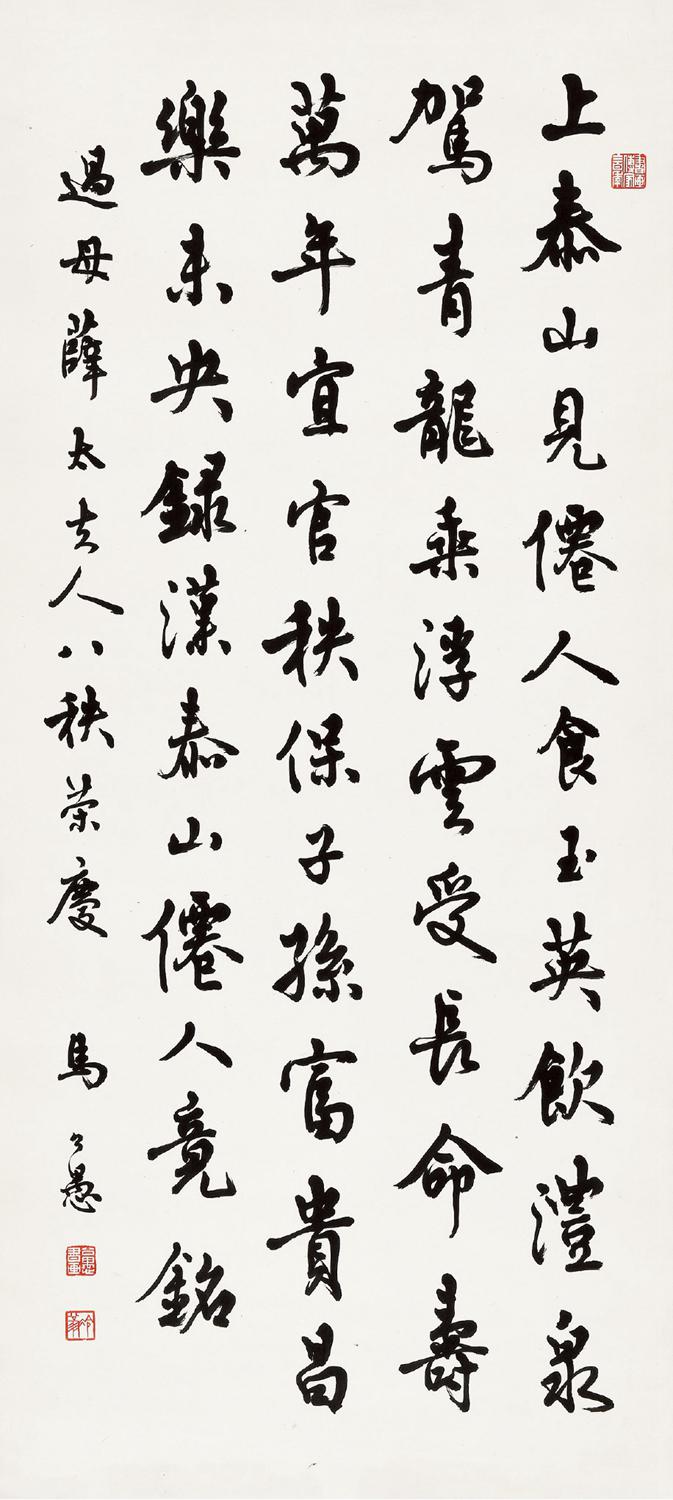 上泰山見僊人食玉英飲澧泉
駕青龍乘浮雲受長命壽
萬年宜官秩保子孫富貴昌
樂未央錄漢泰山僊人竟銘
過母薛太夫人八秩榮慶 馬公愚